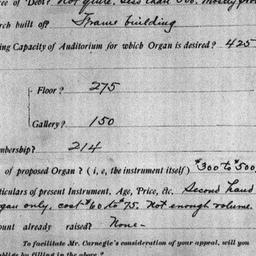 ee of Debt? Not quite. Less than 500. Mostly pro
rch built of? Frame building
ing Capacity of Auditorium for which Organ is desired? 425
Floor? 275
Gallery? 150
mbership? 214
of proposed Organ? (i, e, the instrument itself) $300 to $500
ticulars of present Instrument, Age, Price, &c. Second hand
gan only, cost $60 to $75. Not enough volume.
ount already raised? None-
To facilitate Mr. Carnegie's consideration of your appeal, will you
oblige by filling in the above?